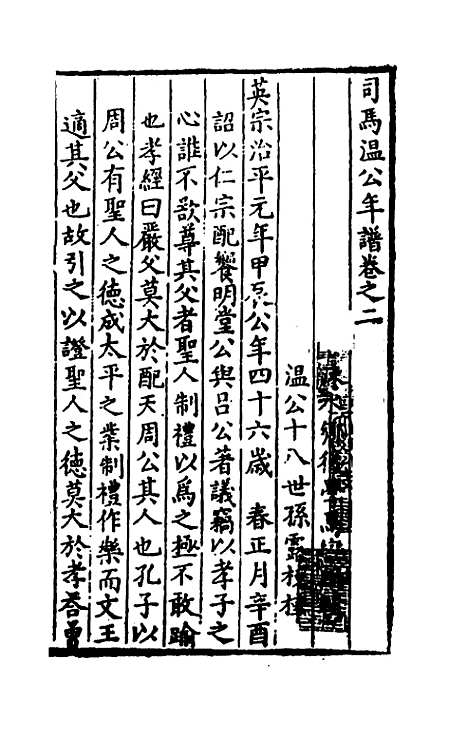 司馬温公年譜卷之二
温公十八世孫露
英宗治平元年甲辰公年四十六歲　春正月辛酉
詔以仁宗配饗明堂公與吕公著議竊以孝子之
心誰不欲尊其父者聖人制禮以爲之極不敢踰
也孝經曰嚴父莫大於配天周公其人也孔子以
周公有聖人之德成太平之業制禮作樂而文王
適其父也故引之以證聖人之德莫大於孝荅曾